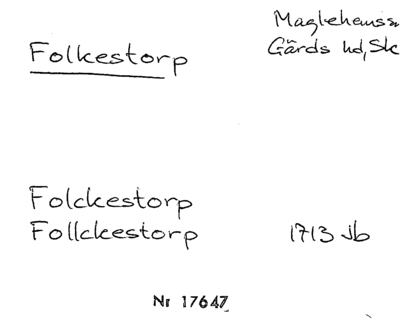 Folkestorp
Maglehems sn
Gärds hd, Sk
Folckestorp
Follckestorp 1713 Jb
Nr 17647